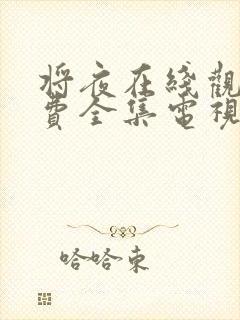 将夜在綫觀
費全集電視
哈哈東